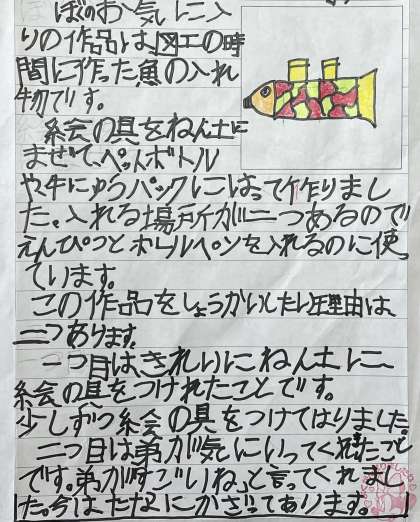 ぼくのお気に入
りの作品は、図工の時
間に作った魚の入れ
物です。
絵の具をねん土に
まぜて、ペットボトル
や牛にゅうパックにはって作りまし
た。入れる場所が二つあるので
えんぴつとボールペンを入れるのに使っ
ています。
この作品をしょうかいしたい理由は、
二つあります。
一つ目は、きれいにねん土に
絵の具をつけれたことです。
少しずつ絵の具をつけてはりました。
二つ目は弟が気にいってくれたこと
です。弟が「すごいね」と言ってくれまし
た。今はたなにかざってあります。